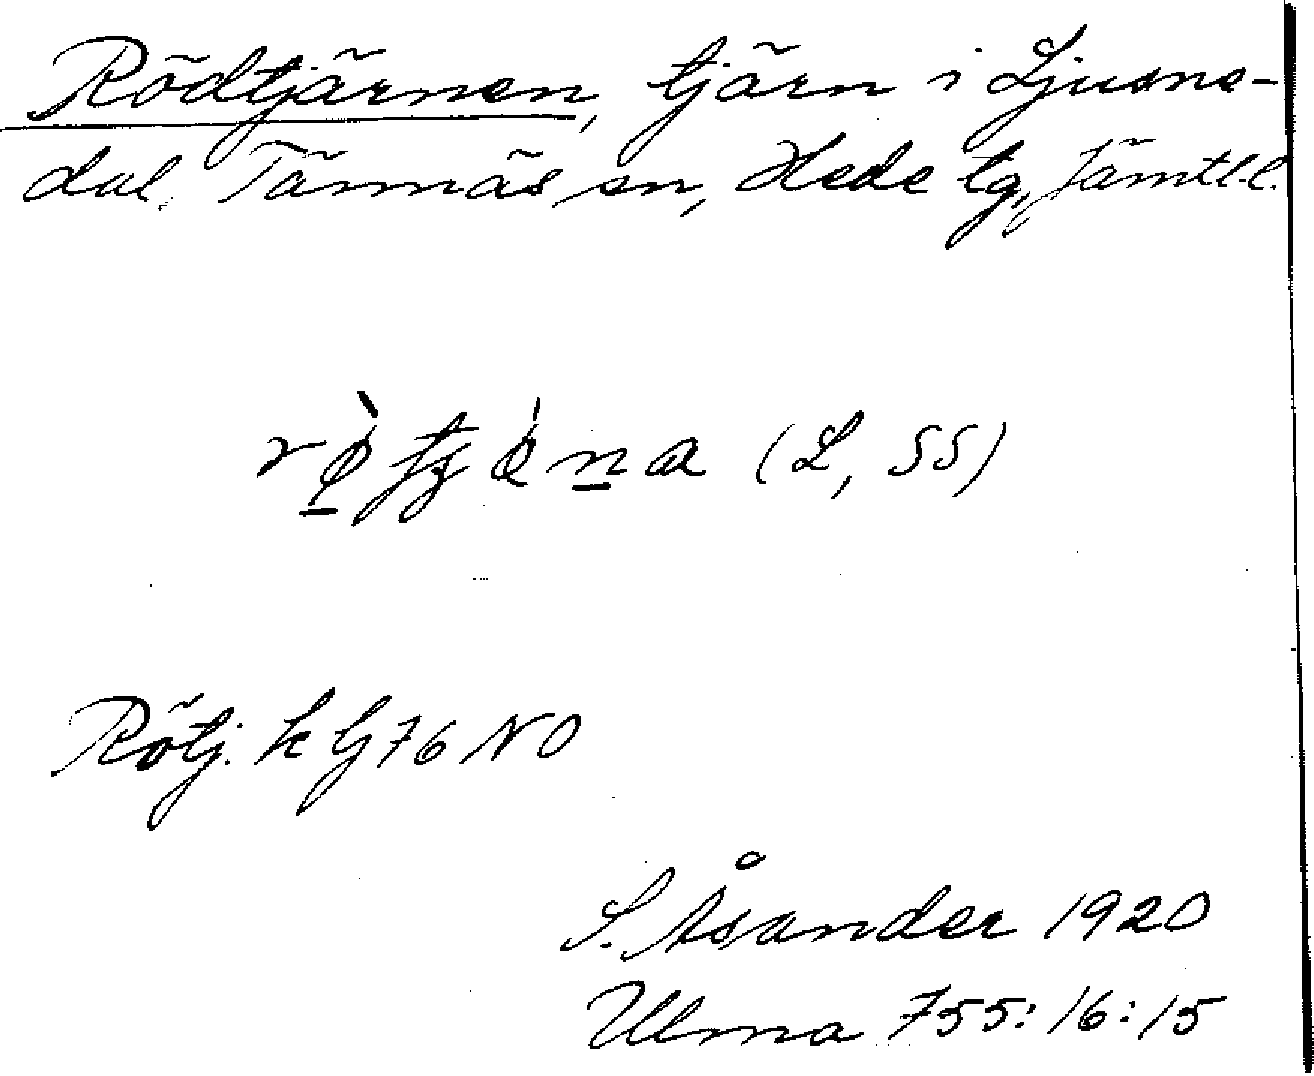 Rödtjärnen, tjärn i Ljusne-
dal, Tännäs sn, Hede tg, Jämtl. l.
(L, SS)
Rötj. k G 76 NO
S. Åsander 1920
Ulma 755:16:15